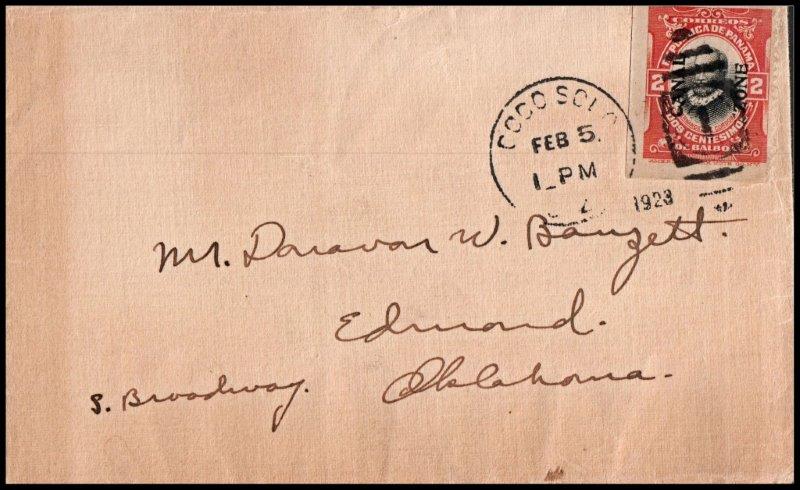 CORREOS
REPUBLICA DE PANAMA
CANAL ZONE
2 2
DOS CENTESIMOS
DE BALBOA
COCO SOLO
FEB 5
1 PM
1923
Mr. Donavan W. Banzett.
Edmond.
S. Broadway. Oklahoma.